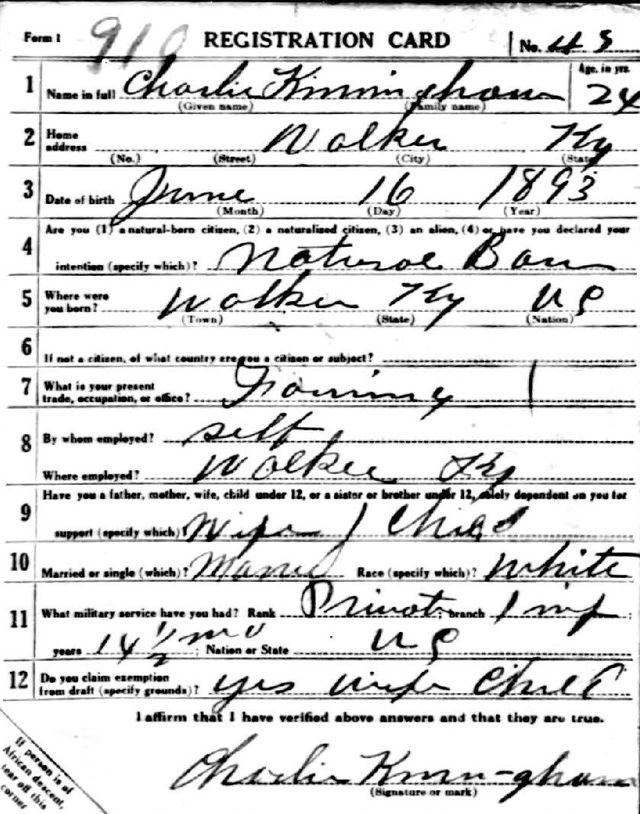 Form 1 910 REGISTRATION CARD No. 43
1 Name in full Charlie Kinningham Age, in yrs. 24
(Given name) (Family name)
2 Home address Walker Ky
(No.) (Street) (City) (State)
3 Date of birth June 16 1893
(Month) (Day) (Year)
4 Are you (1) a natural-born citizen, (2) a naturalized citizen, (3) an alien, (4) or have you declared your
intention (specify which)? Natural Born
5 Where were you born? Walker Ky US
(Town) (State) (Nation)
6 If not a citizen, of what country are you a citizen or subject?
7 What is your present trade, occupation, or office? Farming
8 By whom employed? self
Where employed? Walker Ky
9 Have you a father, mother, wife, child under 12, or a sister or brother under 12, solely dependent on you for
support (specify which)? Wife 1 Child
10 Married or single (which)? Married Race (specify which)? White
11 What military service have you had? Rank Private; branch Inf;
years 14 1/2 mo; Nation or State US
12 Do you claim exemption from draft (specify grounds)? yes wife Child
I affirm that I have verified above answers and that they are true.
Charlie Kinningham
(Signature or mark)
If person is of
African descent,
tear off this
corner